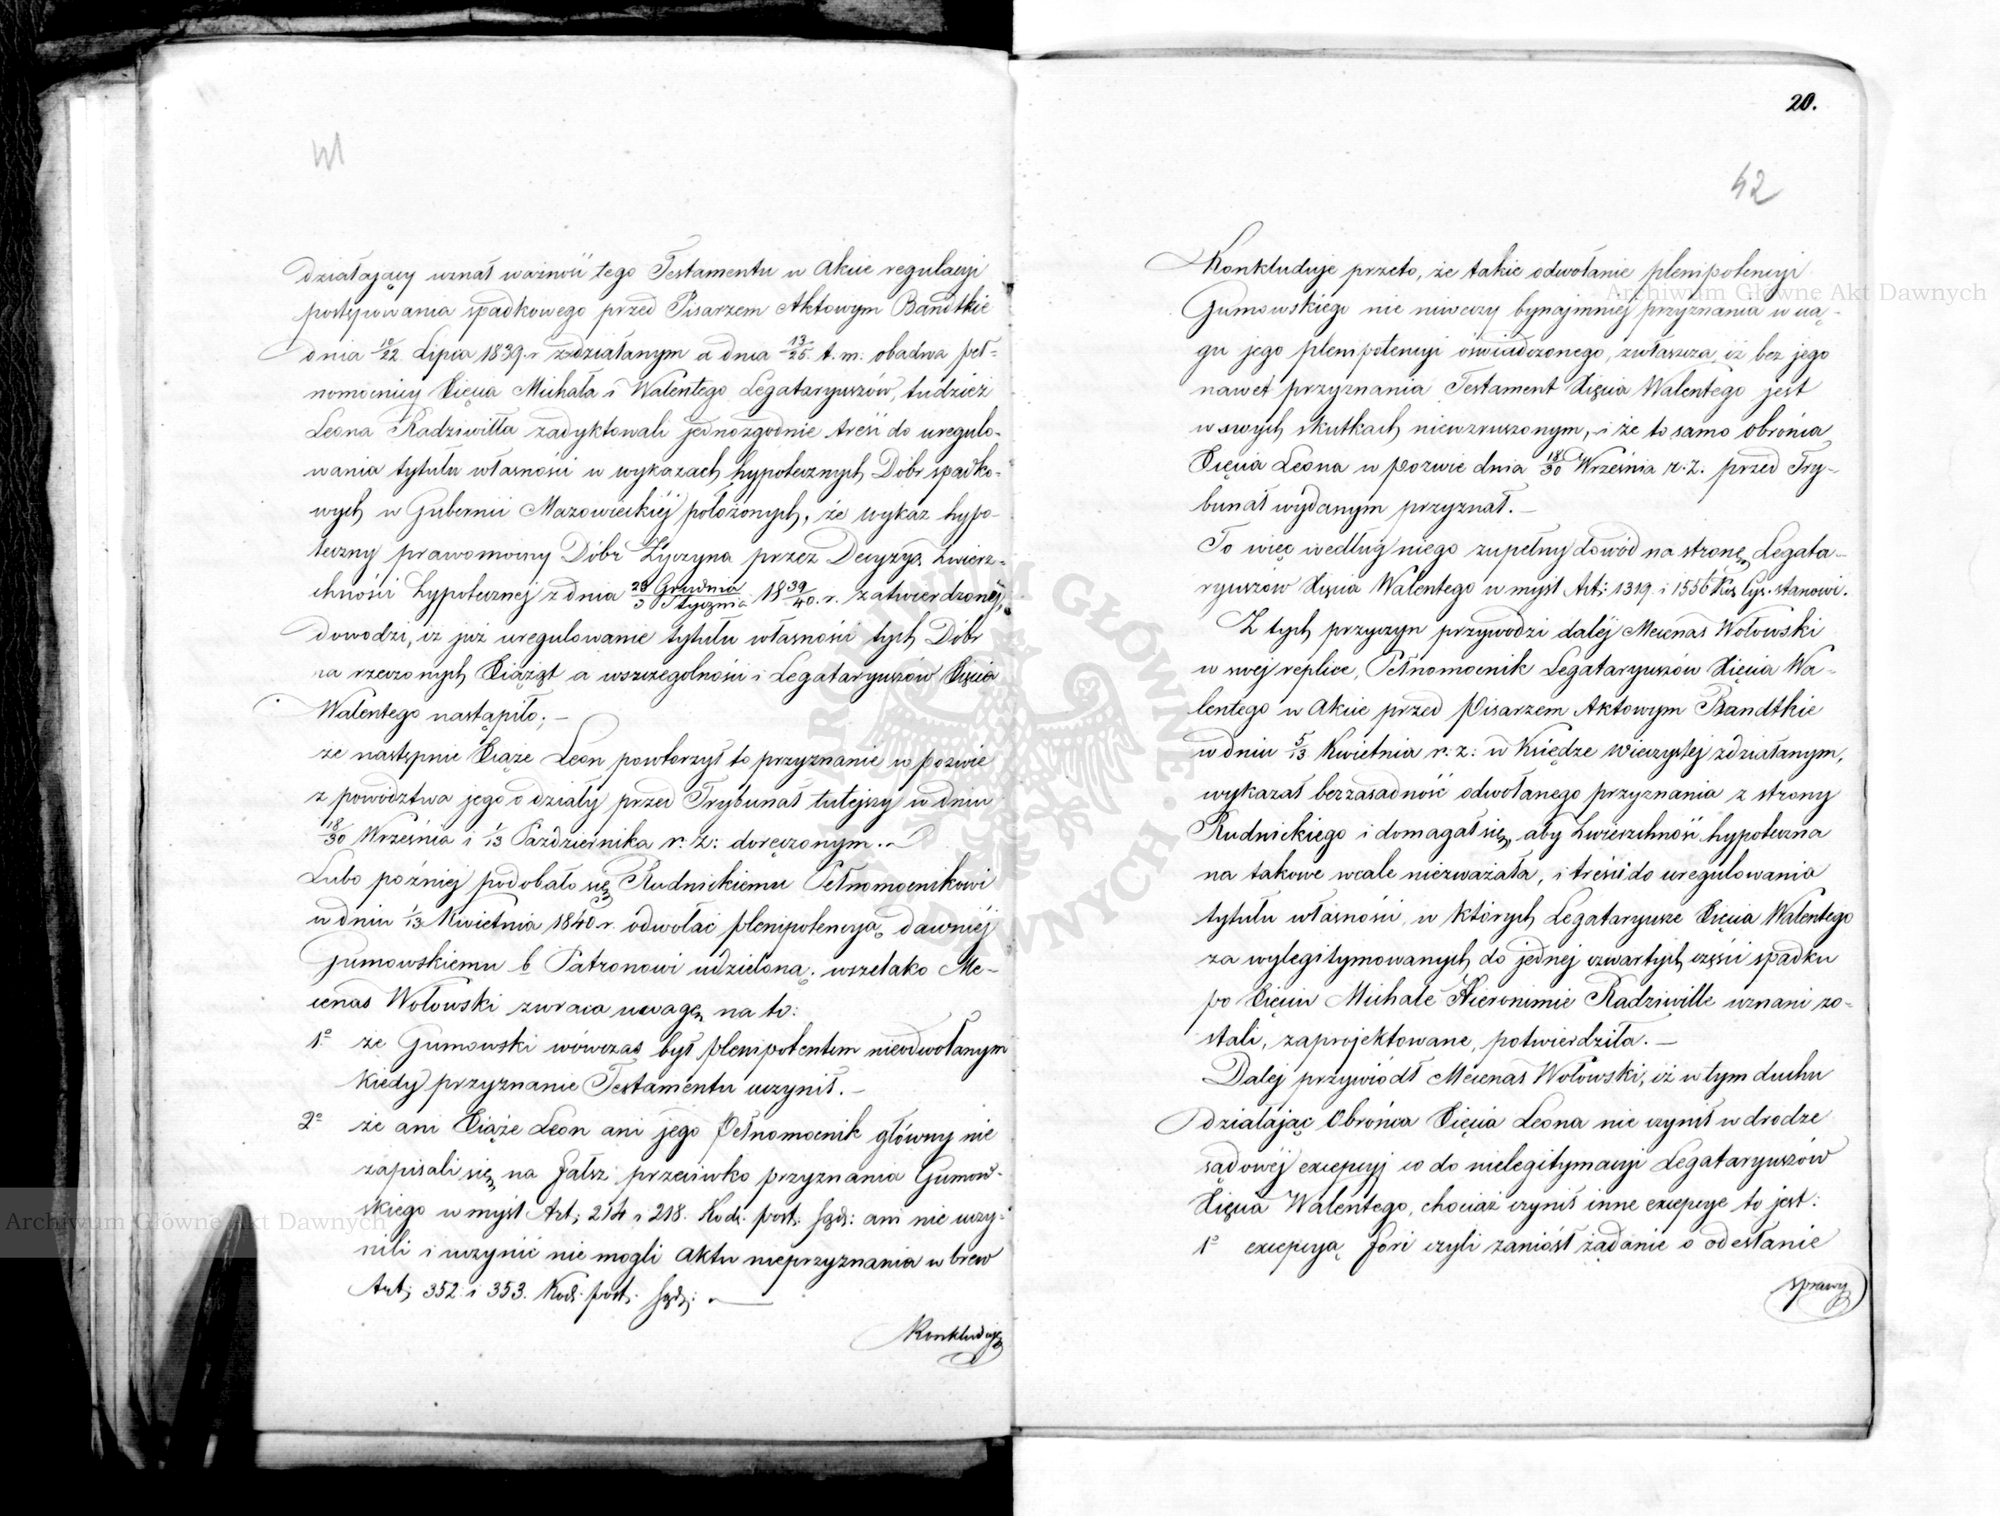 41
działający uznał ważność tego Testamentu w Akcie regulacyi
postępowania spadkowego przed Pisarzem Aktowym Bandtkie
dnia 10/22 Lipca 1839 r. zdziałanym a dnia 13/25 t. m. obadwa peł-
nomocnicy Xięcia Michała i Walentego Legataryuszów, tudzież
Leona Radziwiłła zadyktowali jednozgodnie treść do uregulo-
wania tytułu własności w wykazach hypotecznych Dóbr spadko-
wych w Gubernii Mazowieckiéj położonych, że wykaz hypo-
teczny prawomocny Dóbr Życzyna przez Decyzyą Zwierz-
chności Hypotecznej z dnia 23 Grudnia/3 Stycznia 1839/40 r. zatwierdzonéj,
dowodzi, iż już uregulowanie tytułu własności tych Dóbr
na rzeczonych Xiążąt a wszczególności i Legataryuszów Xięcia
Walentego nastąpiło; —
że następnie Xiąże Leon powtorzył to przyznanie w pozwie
z powództwa jego o działy przed Trybunał tutejszy w dniu
18/30 Września i 1/13 Października r. z: doręczonym. —
Lubo poźniej podobało się Rudnickiemu Pełnomocnikowi
w dniu 1/13 Kwietnia 1840 r. odwołać plenipotencyą dawniéj
Gumowskiemu b. Patronowi udzieloną. wszelako Me-
cenas Wołowski zwraca uwagę na to:
1º że Gumowski wówczas był plenipotentem nieodwołanym
kiedy przyznanie Testamentu uczynił. —
2º że ani Xiąże Leon ani jego Pełnomocnik główny nie
zapisali się na fałsz przeciwko przyznania Gumow-
skiego w myśl Art: 214 i 218. Kod: post: Sąd: ani nie uczy-
nili i uczynić nie mogli aktu nieprzyznania w brew
Art: 352 i 353. Kod: post: Sąd: —
Konkluduje
20.
42
Konkluduje przeto, że takie odwołanie plenipotencyi
Gumowskiego nie niweczy bynajmniej przyznania w cią-
gu jego plenipotencyi oświadczonego, zwłaszcza, iż bez jego
nawet przyznania Testament Xięcia Walentego jest
w swych skutkach niewzruszonym, i że to samo obrońca
Xięcia Leona w pozwie dnia 18/30 Września r. z. przed Try-
bunał wydanym przyznał. —
To więc według niego zupełny dowód na stronę Legata-
ryuszów Xięcia Walentego w myśl Art: 1319 i 1356 Kod. Cyw. stanowi.
Z tych przyczyn przywodzi daléj Mecenas Wołowski
w swej replice, Pełnomocnik Legataryuszów Xięcia Wa-
lentego w Akcie przed Pisarzem Aktowym Bandtkie
w dniu 5/13 Kwietnia r. z: w Księdze wieczystej zdziałanym,
wykazał bezzasadność odwołanego przyznania z strony
Rudnickiego i domagał się, aby Zwierzchność hypoteczna
na takowe wcale niezważała, i treści do uregulowania
tytułu własności, w których Legataryusze Xięcia Walentego
za wylegitymowanych do jednej czwartych części spadku
po Xięciu Michale Hieronimie Radziwille uznani zo-
stali, zaprojektowane, potwierdziła. —
Dalej przywiódł Mecenas Wołowski, iż w tym duchu
działając Obrońca Xięcia Leona nie czynił w drodze
sądowéj excepcyj co do nielegitymacyi Legataryuszów
Xięcia Walentego, chociaż czynił inne excepcye to jest:
1º excepcyą fori czyli zaniósł żądanie o odesłanie
sprawy
Archiwum Główne Akt Dawnych
Archiwum Główne Akt Dawnych
ARCHIWUM GŁÓWNE AKT DAWNYCH